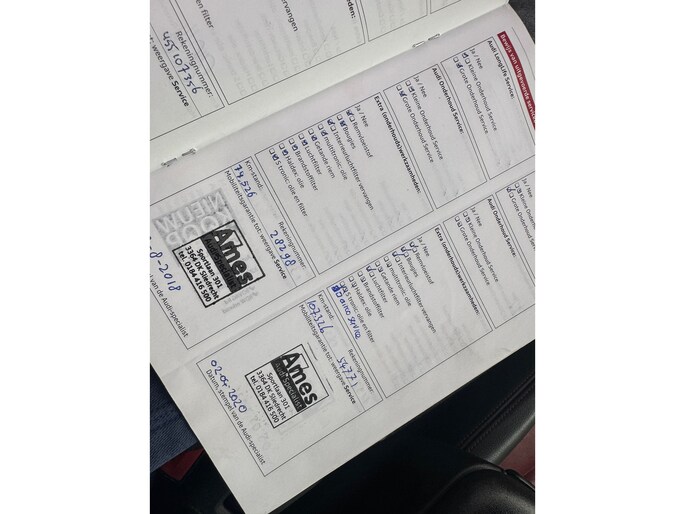 en filter
ervangen
Rekeningnummer:
455107356
weergave Service
Bewijs van uitgevoerde
Audi LongLife Service:
Ja / Nee
Kleine Onderhoud Service
Grote Onderhoud Service
Audi Onderhoud Service:
Ja / Nee
Kleine Onderhoud Service
Grote Onderhoud Service
Extra (onderhouds)werkzaamheden:
Ja / Nee
Remvloeistof
Bougies
Interieurluchtfilter vervangen
multitronic: olie
Getande riem
Luchtfilter
Brandstoffilter
Haldex: olie
S tronic: olie en filter
Km-stand:
79.526
Rekeningnummer:
28298
Mobiliteitsgarantie tot: weergave Service
Ames
Audi-Specialist
Sportlaan 301
3364 DK Sliedrecht
tel. 0184 416 500
8-2018
van de Audi-specialist
Ja / Nee
Kleine Onderhoud Service
Grote Onderhoud Service
Audi Onderhoud Service:
Ja / Nee
Kleine Onderhoud Service
Grote Onderhoud Service
Extra (onderhouds)werkzaamheden:
Ja / Nee
Remvloeistof
Bougies
Interieurluchtfilter vervangen
multitronic: olie
Getande riem
Luchtfilter
Brandstoffilter
Haldex: olie
S tronic: olie en filter
Km-stand:
107326
Rekeningnummer:
54771
Mobiliteitsgarantie tot: weergave Service
Ames
Audi-Specialist
Sportlaan 301
3364 DK Sliedrecht
tel. 0184 416 500
Datum, stempel van de Audi-specialist